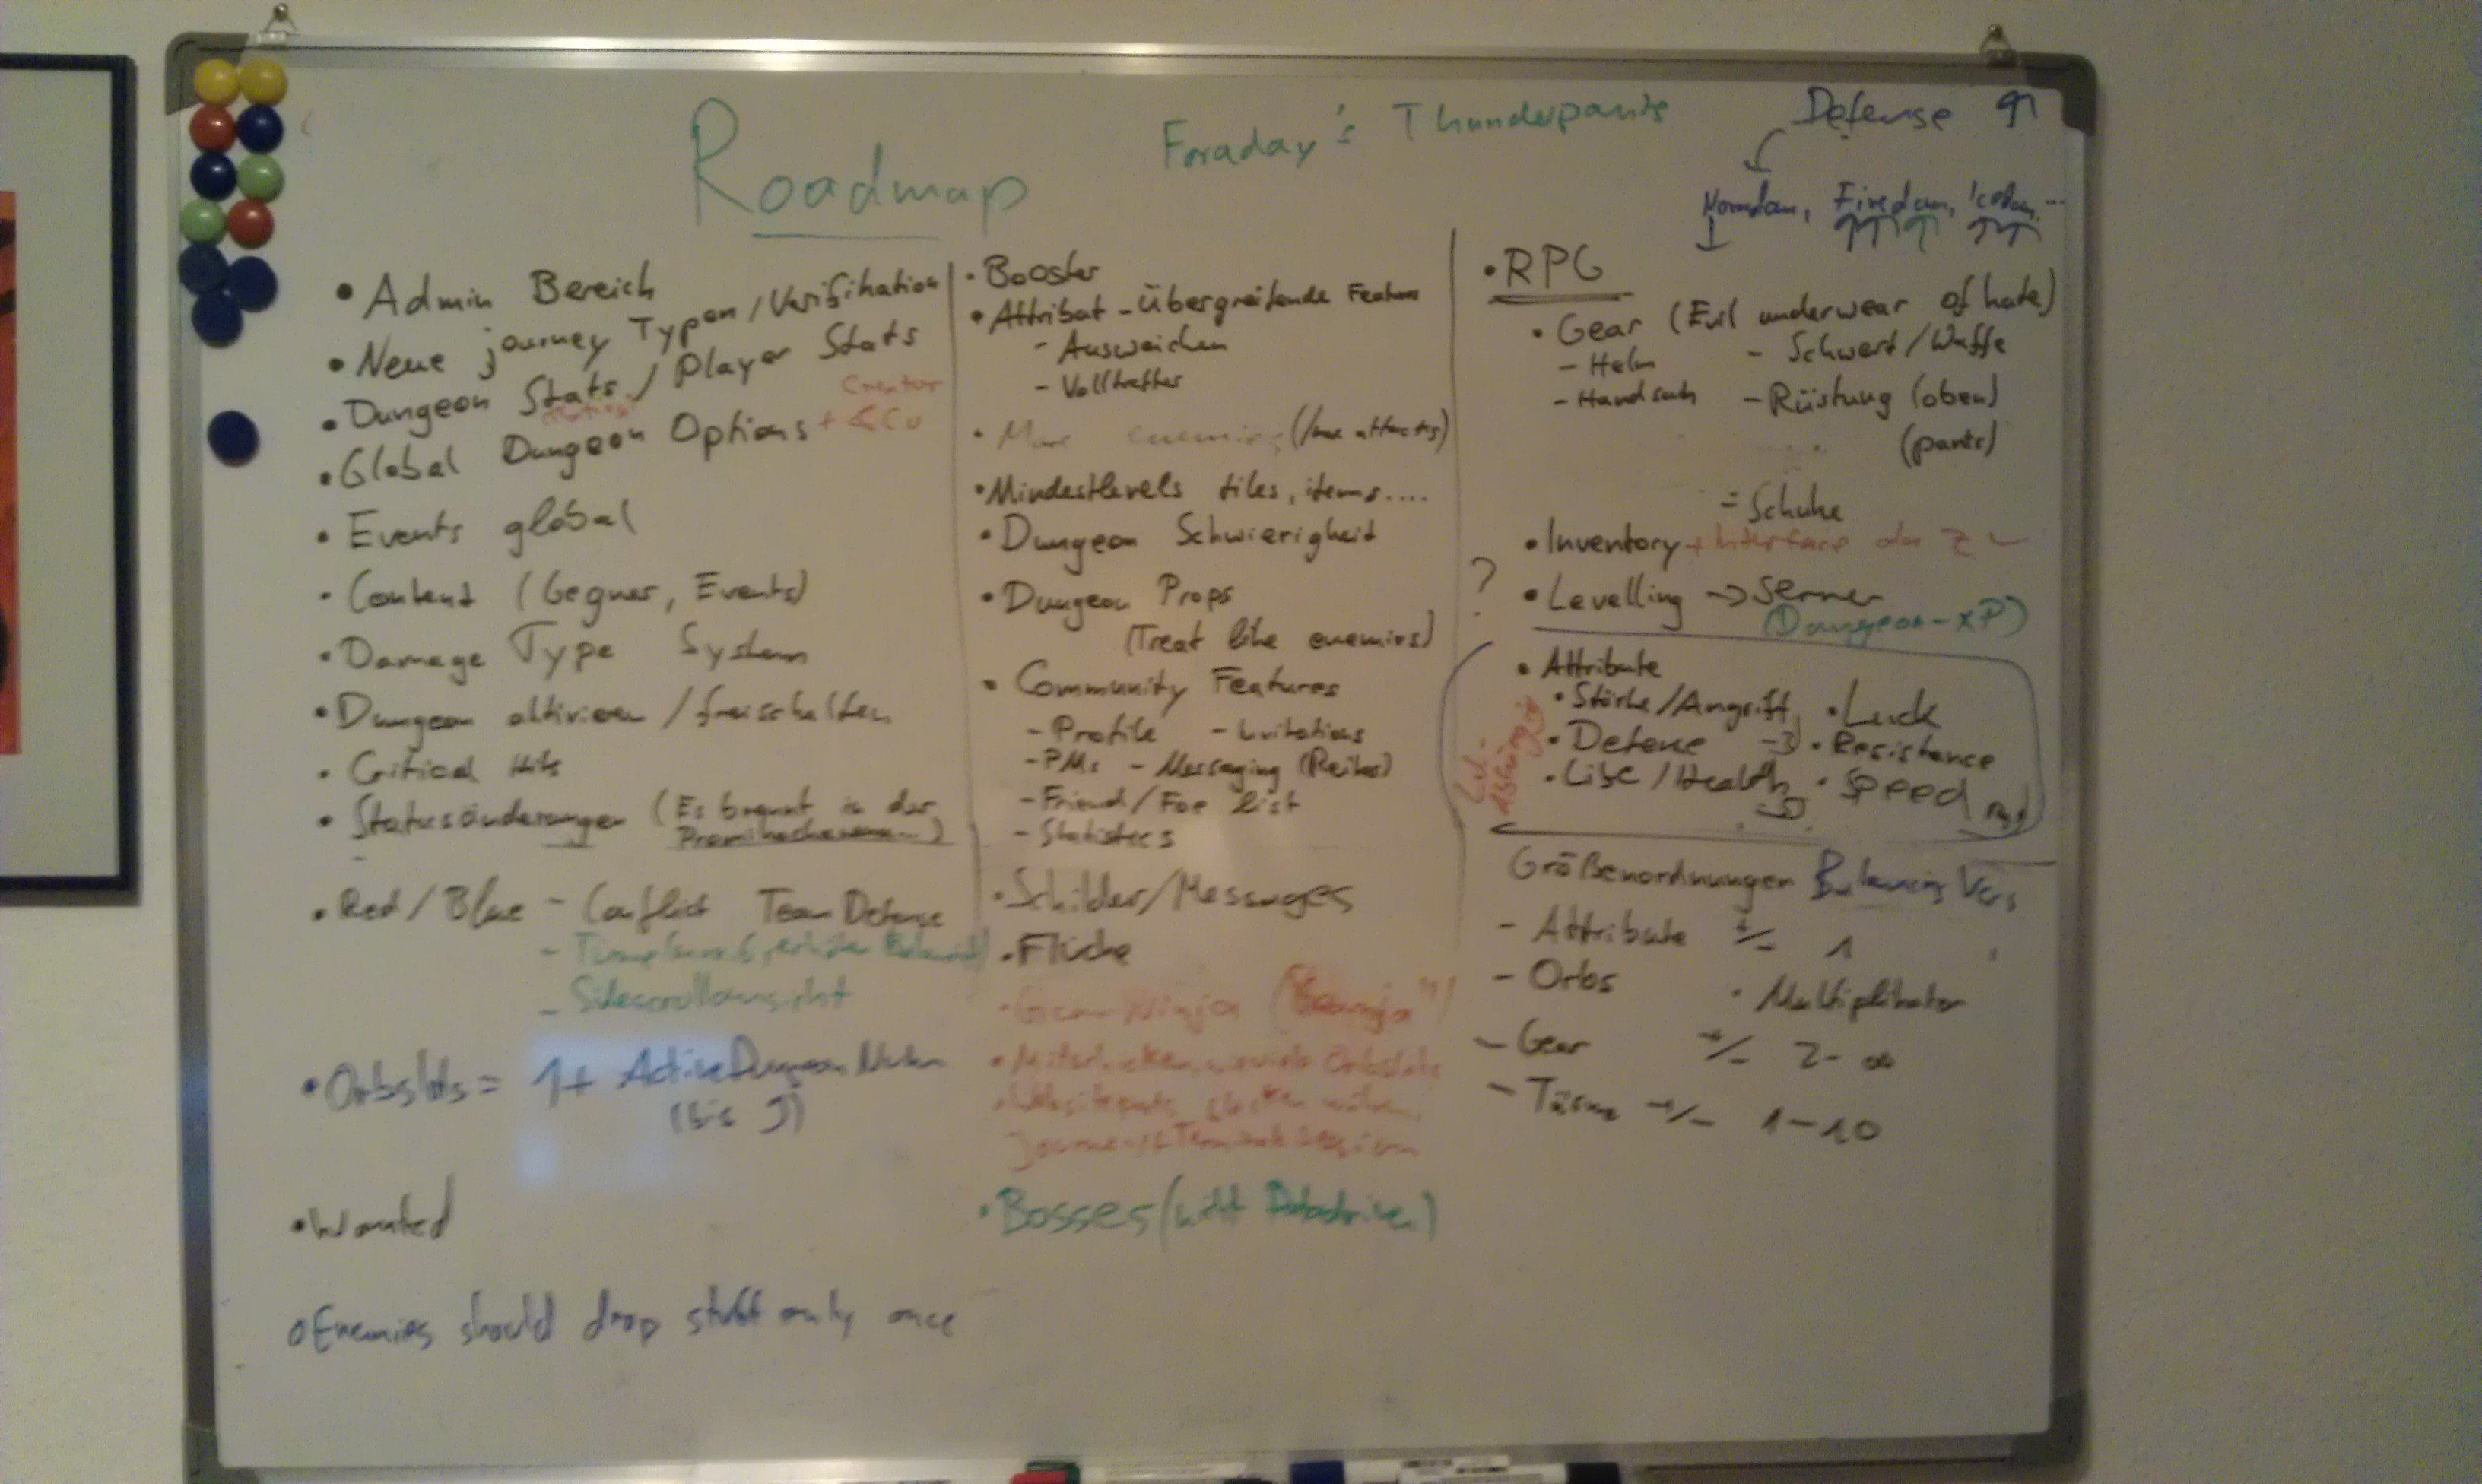 Roadmap
Foraday's Thunderpants
Defense
Normdam, Firedam, Icedam, ...
• Admin Bereich
• Neue journey Typen / Verifikation
• Dungeon Stats / Player Stats
• Global Dungeon Options + &Co
Creator
• Events global
• Content (Gegner, Events)
• Damage Type System
• Dungeon aktivieren / freischalten
• Critical Hits
• Statusänderungen (Es brennt in der
• Red / Blue - Conflict Team Defense
- Sidescrollansicht
• Orbslots = 1+ ActiveDungeon
(bis
• Wanted
• Enemies should drop stuff only once
• Booster
• Attribut-Übergreifende Features
- Ausweichen
- Volltreffer
• More enemies (/more attacks)
• Mindestlevels tiles, items....
• Dungeon Schwierigkeit
• Dungeon Props
(Treat like enemies)
• Community Features
- Profile - Invitations
- PMs - Messaging (Reiter)
- Friend / Foe list
- Statistics
• Schilder/Messages
• Flüche
• Ninja
• Bosses (nicht Datadriven)
• RPG
• Gear (Evil underwear of hate)
- Helm - Schwert / Waffe
- Handsch - Rüstung (oben)
(pants)
- Schuhe
• Inventory + Interface
? • Levelling -> Server
(Dungeon-XP)
• Attribute
• Stärke/Angriff • Luck
• Defense -> • Resistance
• Life / Health • Speed
Größenordnungen Balancing Vers
- Attribute +/- 1
- Orbs • Multiplikator
- Gear +/- 2-∞
- Türme +/- 1-10